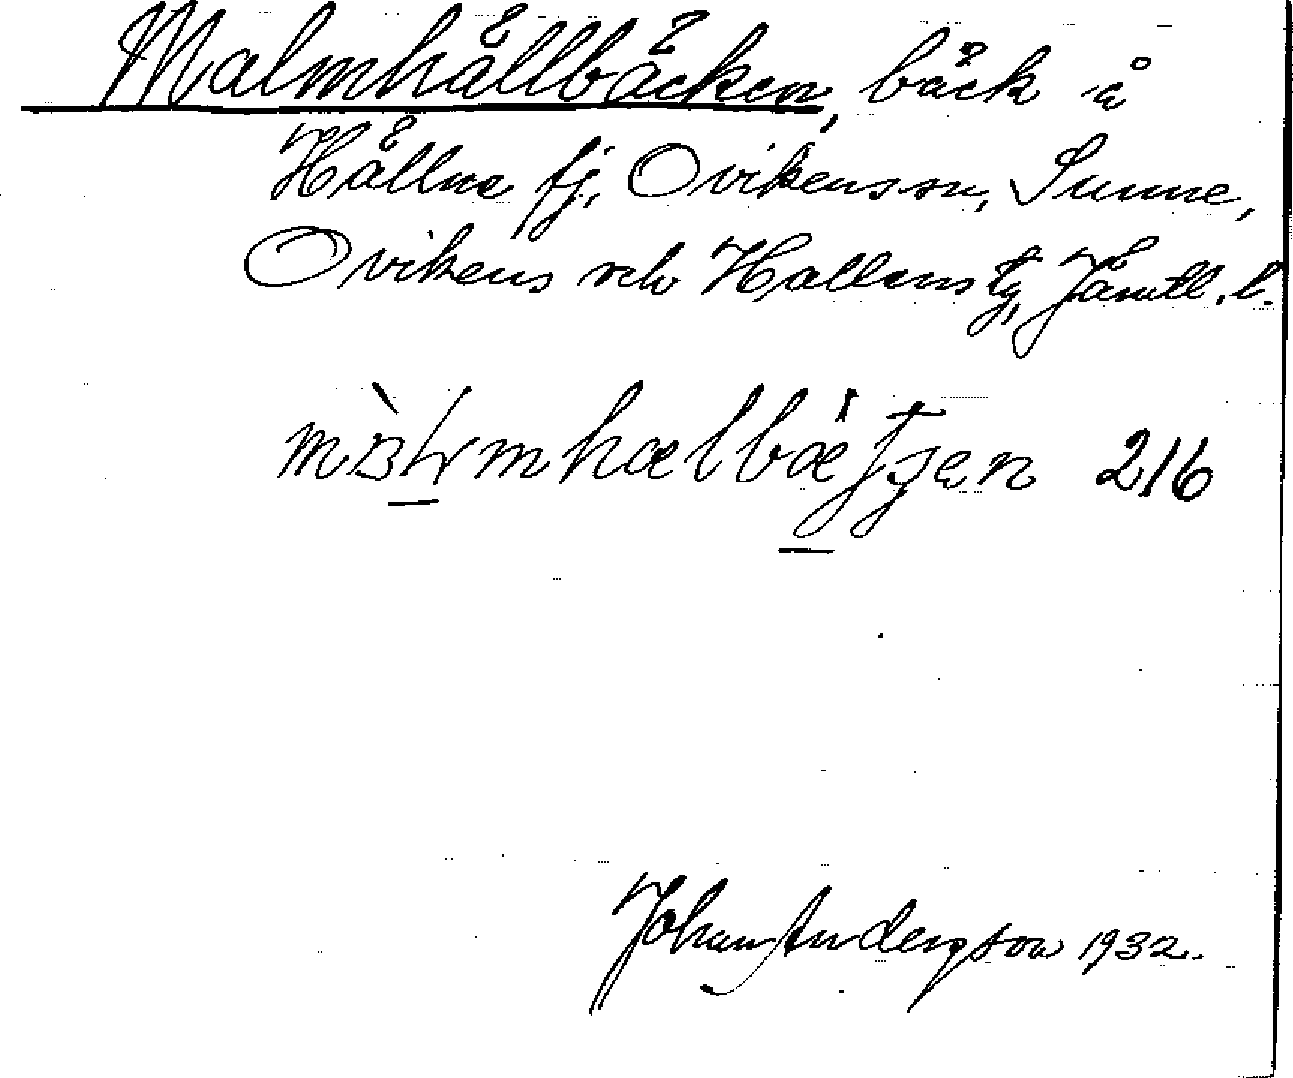 Malmhållbäcken, bäck å
Hållne fj, Ovikens sn, Sunne,
Ovikens och Hallens tg, Jämtl. l.
216
Johan Anderson 1932.